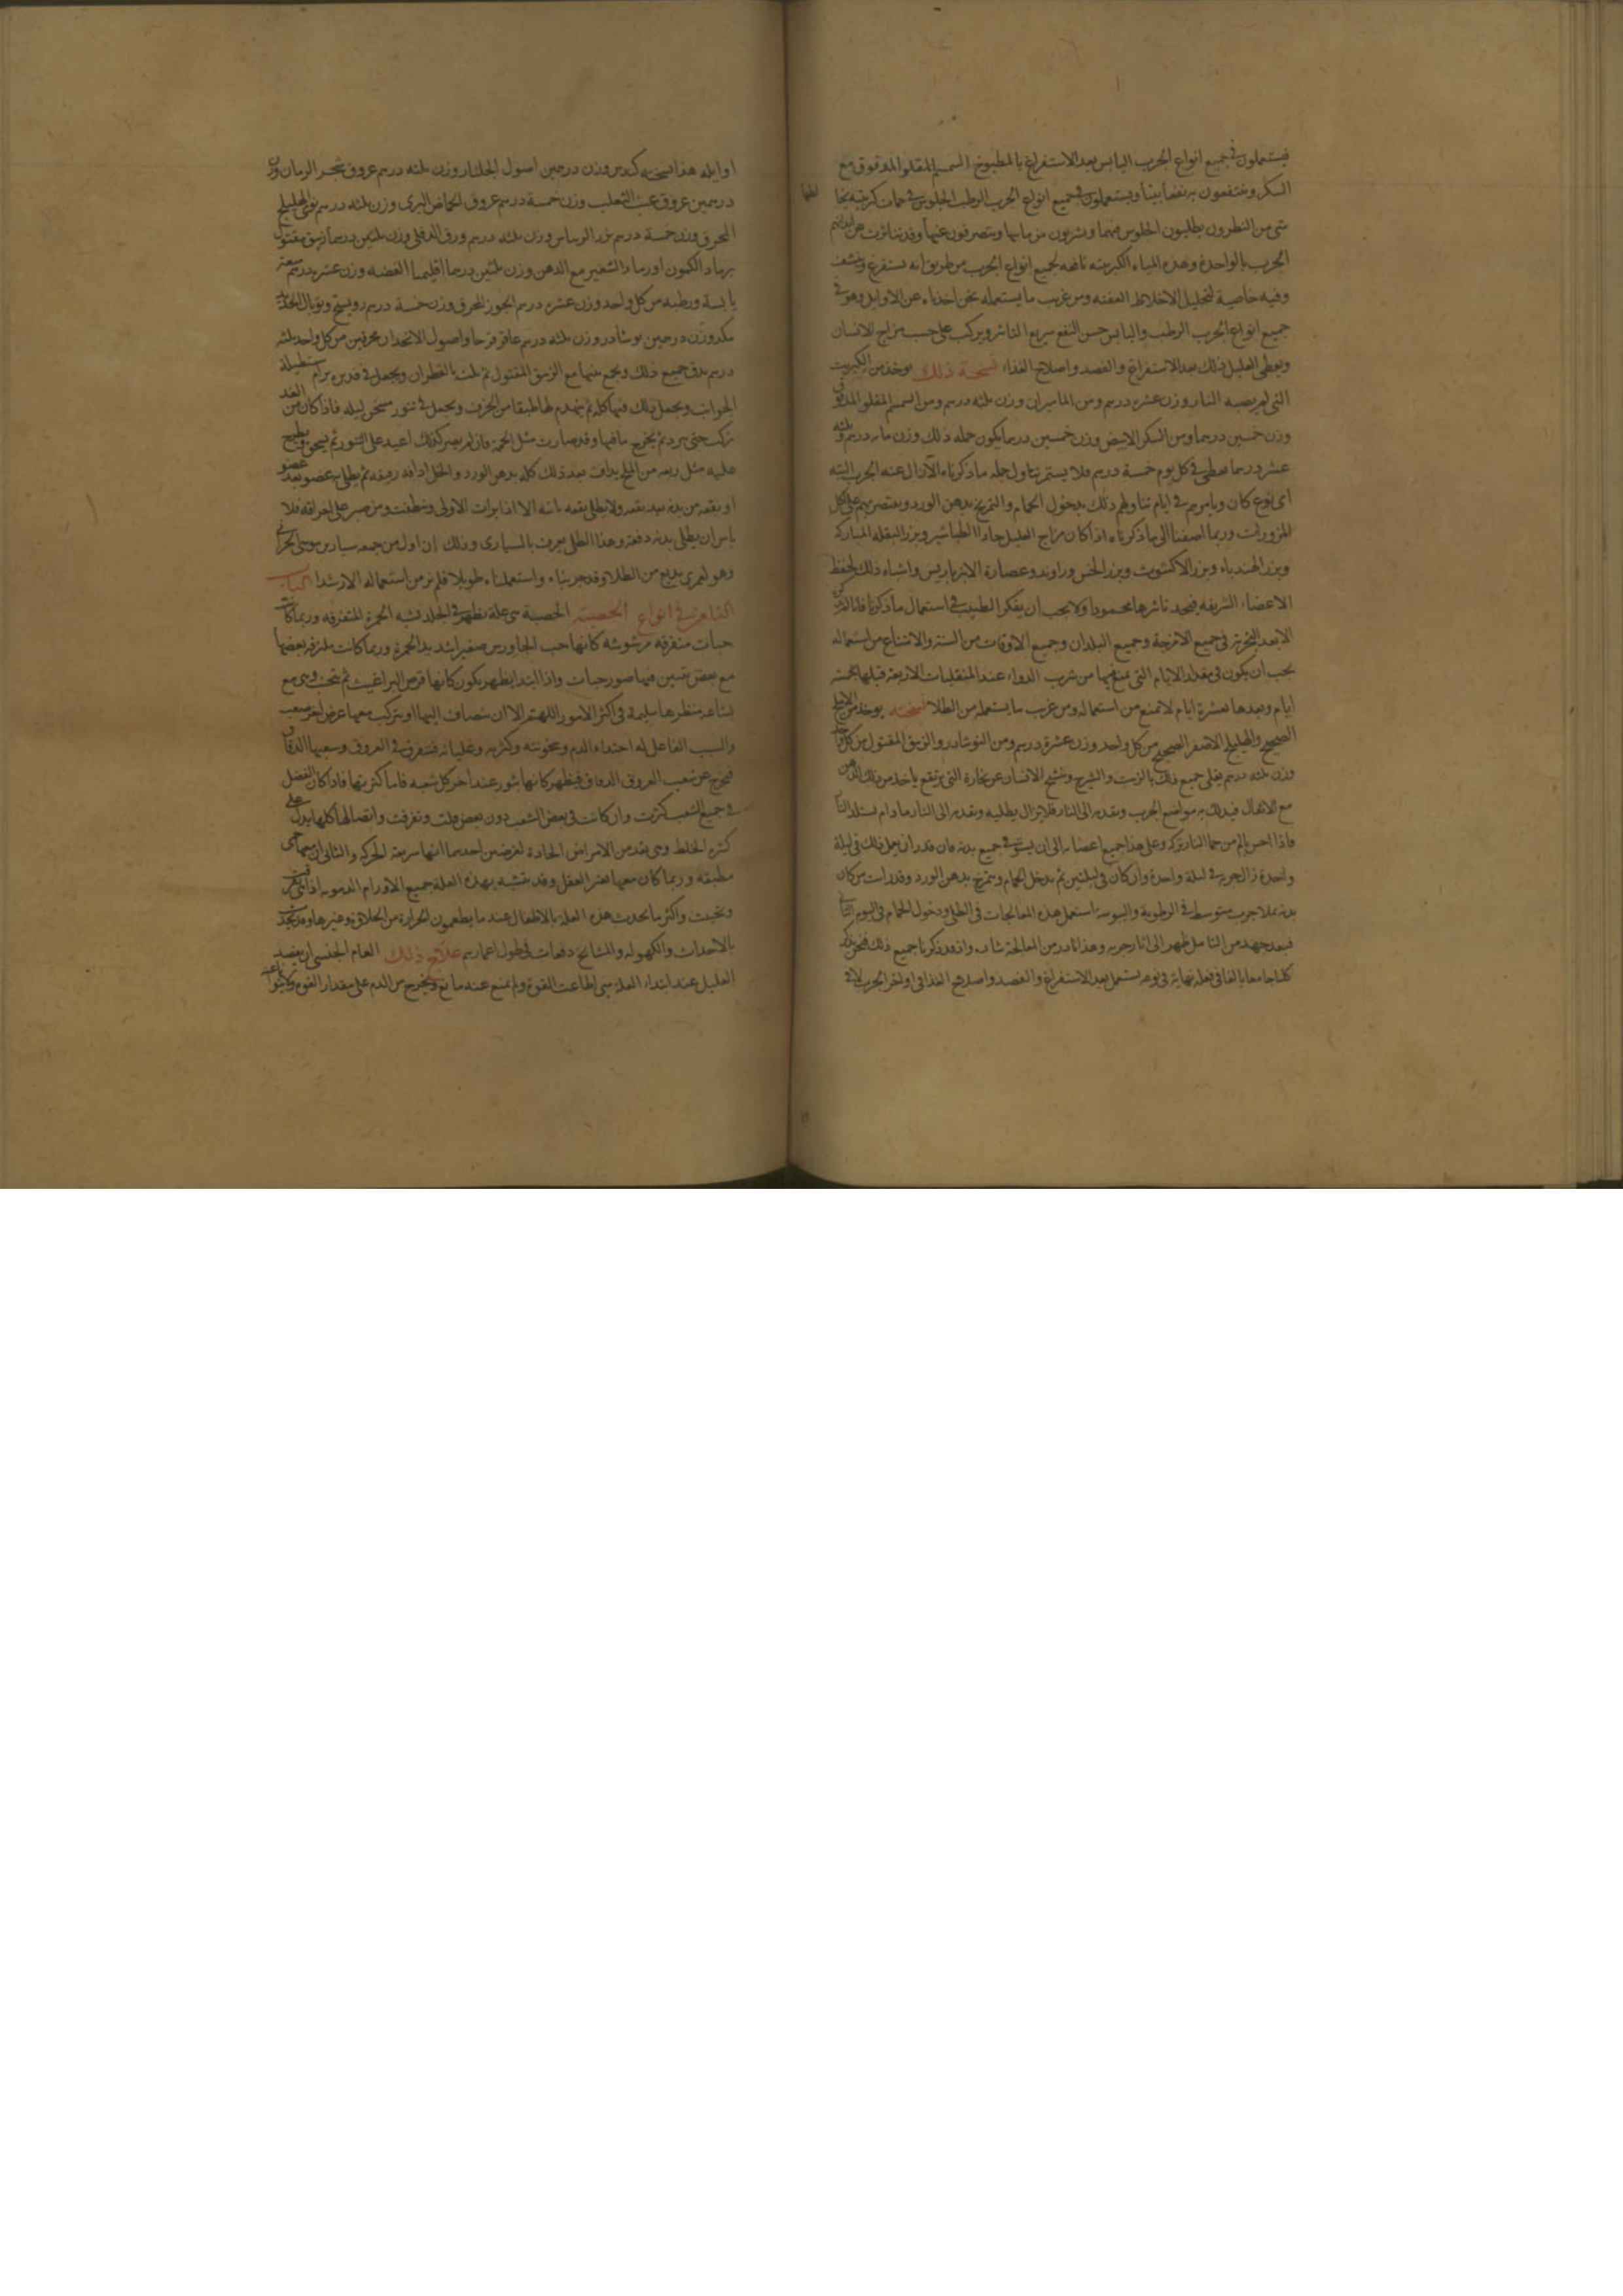 فيستعملون في جميع انواع الجرب اليابس بعد الاستفراغ بالمطبوخ السمسم المقلو المدقوق مع
السكر وينتفعون به نفعا بينا ويستعملون في جميع انواع الجرب الرطب الجلوس في حمات كبريتية يخا
لطها
شي من النطرون يطيلون الجلوس فيها ويشربون من مايها وينصرفون عنها وقد تناثرت عن ابدانهم
الجرب بالواحدة وهذه المياه الكبريتية نافعه لجميع انواع الجرب من طريق انه يستفرغ وينشف
وفيه خاصية لتحليل الاخلاط العفنه ومن غريب ما يستعمله نحن اخذناه عن الاوايل وهو في
جميع انواع الجرب الرطب واليابس حسن النفع سريع التاثير ويركب على حسب مزاج الانسان
ويعطي العليل ذلك بعد الاستفراغ والفصد واصلاح الغذاء نسخة ذلك يوخذ من الكبريت
التي لم يصبه النار وزن عشرة درهم ومن الماميران وزن ثلثه درهم ومن السمسم المقلو المدقوق
وزن خمسين درهما ومن السكر الابيض وزن خمسين درهما يكون جمله ذلك وزن مايه درهم وثلثه
عشر درهما يعطي في كل يوم خمسة درهم فلا يستتم تناول جمله ما ذكرناه الا زال عنه الجرب البته
اي نوع كان ويامرهم في ايام تناولهم ذلك بدخول الحمام والتمريخ بدهن الورد ويقتصر بهم على اكل
المزورات وربما اضفنا الى ما ذكرناه اذا كان مزاج العليل حارا الطباشير وبزر البقله المباركه
وبزر الهندباء وبزر الاكشوث وبزر الخس وراوند وعصارة الانبرباريس واشباه ذلك لحفظ
الاعضاء الشريفه فيجد تاثيرها محمودا ولا يجب ان يفكر الطبيب في استعمال ما ذكرنا
الا بعد التحرز في جميع الامزجة وجميع البلدان وجميع الاوقات من السنه والامتناع من استعماله
يجب ان يكون في مقدار الايام التي يمنع فيها من شرب الدواء عند المنقلبات الاربعة قبلها بخمسة
ايام وبعدها بعشرة ايام لا تمنع من استعماله ومن غريب ما يستعمله من الطلا نسخته يوخذ من الاملج
الصحيح والهليلج الاصفر الصحيح من كل واحد وزن عشرة درهم ومن النوشادر والزيبق المقتول من كل واحد
وزن ثلثه درهم يغلي جميع ذلك بالزيت والشيرج وينتحي الانسان عن بخاره التي يرتفع ياخذ من ذلك الدهن
مع الاثفال فيدلك به مواضع الجرب ويقدمه الى النار فلا يزال يطليه ويقدمه الى النار ما دام يستلذ النار
فاذا احس بالم من حما النار تركه وعلى هذا جميع اعضائه الى ان يستوفي جميع بدنه فان قدر ان يعمل ذلك في ليلة
واحدة زال جربه في ليلة واحدة وان كان في ليلتين ثم يدخل الحمام ويتمرخ بدهن الورد وقد رايت من كان
بدنه مملا جرب متوسط في الرطوبة واليبوسة استعمل هذه المعالجات في الطلي ودخول الحمام في اليوم الثاني
فبعد جهد من التامل ظهر الى اثار جربه وهذا نادر من المعالجة شاذ واذ قد ذكرنا جميع ذلك فنحن نذكر
كلاما جامعا بالغا في فعله نهاية في نوعه يستعمل بعد الاستفراغ والفصد واصلاح الغذا في اواخر الجرب لا في
اوايله هذا نسخته كندس وزن درهمين اصول الجلنار وزن ثلثه درهم عروق شجر الرمان وزن
درهمين عروق عنب الثعلب وزن خمسة درهم عروق الحماض البري وزن ثلثه درهم نوى الهليلج
المحرق وزن خمسة درهم بزر الورد وزن ثلثه درهم ورق الدفلي وزن ثلثين درهما زيبق مقتول
برماد الكمون او رماد الشعير مع الدهن وزن ثلثين درهما اقليميا الفضه وزن عشرة درهم سعتر
يابسة ورطبه من كل واحد وزن عشرة درهم الجوز المحرق وزن خمسة درهم روسختج وتوبال الحديد
وزن درهمين نوشادر وزن ثلثه درهم عاقرقرحا واصول الانجدان محرقين من كل واحد ثلثه
درهم يدق جميع ذلك ويجمع بينها مع الزيبق المقتول ثم يلت بالقطران ويجعل في قدر برام مستطيلة
الجوانب ويجعل ذلك فيها كله ثم يهندم لها طبقا من الخزف ويجعل في تنور مسخن ليله فاذا كان من الغد
تركت حتى يبرد ثم يخرج ما فيها وقد صارت مثل الحممه فان لم يصر كذلك اعيد على التنور ثم يسحق ويطرح
عليه مثل ربعه من الملح يداف بعد ذلك كله بدهن الورد والخل ادافه رقيقه ثم يطلي به عضو بعد عضو
او بقعه من بدنه بعد بقعه ولا يطلي بقعه ثانيه الا اذا برات الاولى ونظفت ومن صبر على احراقه فلا
باس ان يطلي بدنه دفعة وهذا الطلي يعرف بالسياري وذلك ان اول من جمعه سيار بن موسى الحراني
وهو لعمري بديع من الطلا وقد جربناه واستعملناه طويلا فلم نر من استعماله الا رشدا الباب
الثامن في انواع الحصبة الحصبة هي علة يظهر في الجلد يشبه الحمرة المتفرقه وربما كانت
حبات متفرقه مرشوشه كانها حب الجاورس صغير اشد يدا لحمرة وربما كانت ملتزقه بعضها
مع بعض تبين فيها صور حبات واذا ابتدا يظهر يكون كانها قرص البراغيث ثم يتحبب وهي مع
بشاعه منظرها سليمه في اكثر الامور اللهم الا ان ينضاف اليها او يتركب معها عرض اخر صعب
والسبب الفاعل له احتداد الدم وسخونته وكثرته وغليانه فيتفرق في العروق وشعبها الدقاق
فيخرج عن شعب العروق الدقاق فيظهر كانها بثور عند اخر كل شعبه فاما كثرتها فاذا كان الفضل
في جميع الشعب كثرت وان كانت في بعض الشعب دون بعض قلت وتفرقت واتصالها كلها يدل على
كثرة الخلط وهي يعد من الامراض الحادة لغرضين احدهما انها سريعة الحركه والثاني ان معها حمى
مطبقه وربما كان معها تغير العقل وقد يتشبه بهذه العلة جميع الاورام الدمويه اذا
وتحببت واكثر ما يحدث هذه العله بالاطفال عند ما يطعمون الحرارة من الحلاوة وغيرها وقد يحدث
بالاحداث والكهوله والمشائخ دفعات في طول اعمارهم علاج ذلك العام الجنسي ان يفصد
العليل عند ابتداء العلة متى اطاعت القوة ولم يمنع عنه مانع ويخرج من الدم على مقدار القوه